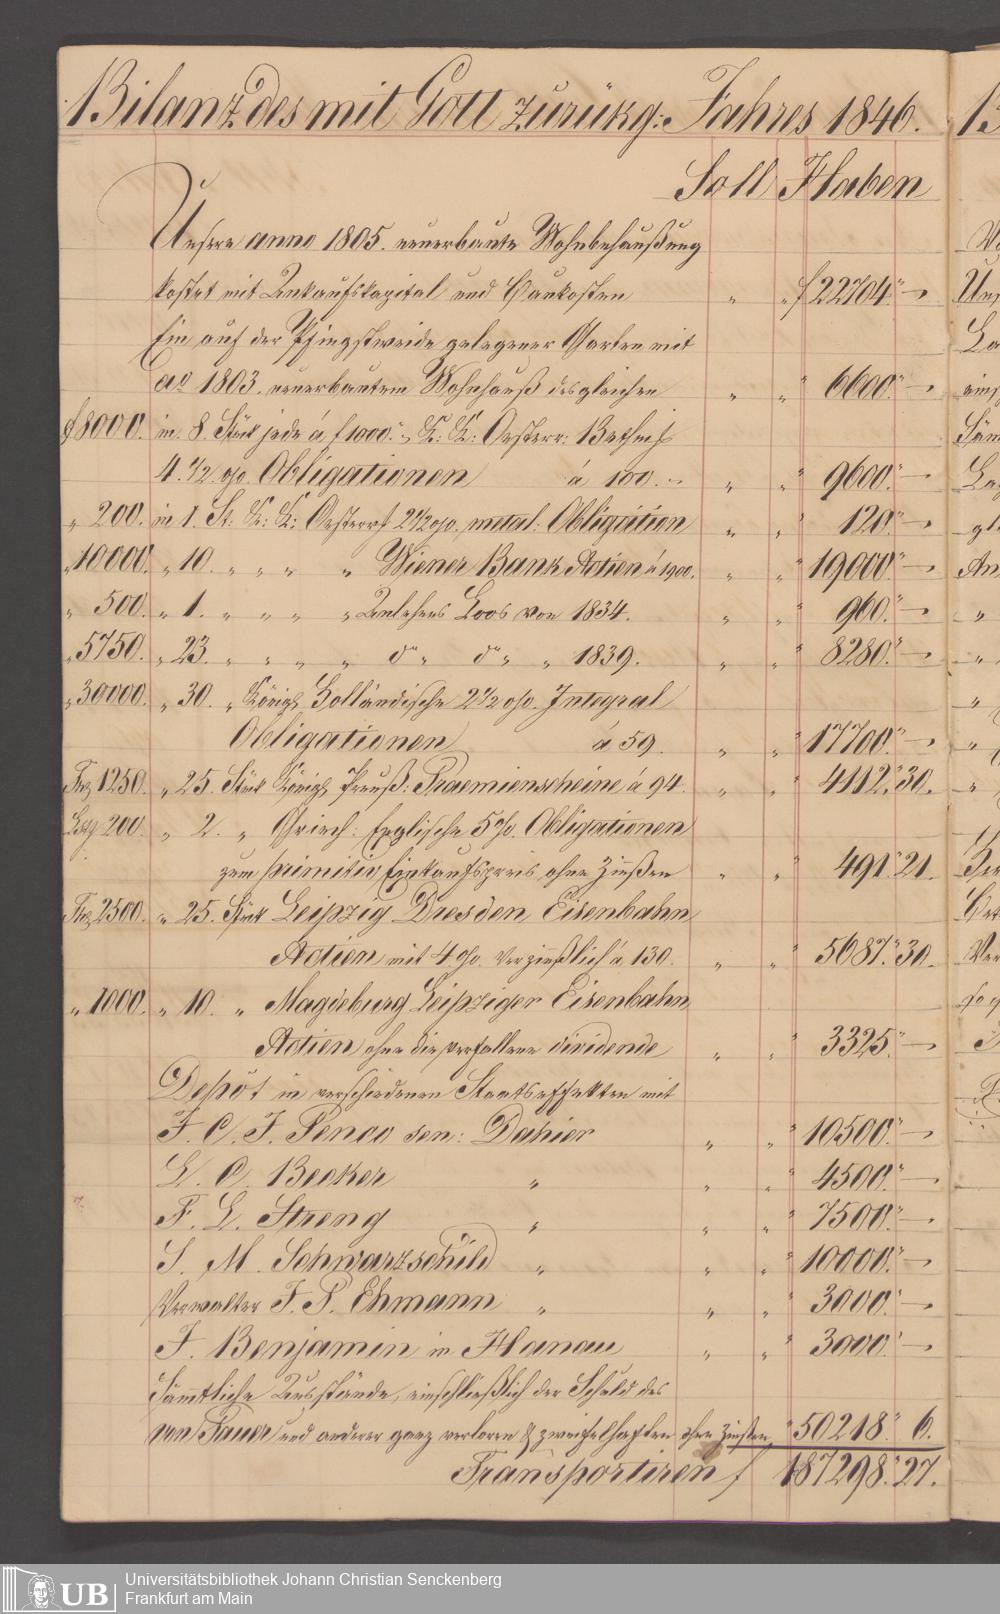 Bilanz des mit Gott zurükg: Jahres 1846.
Soll Haben
Unsere anno 1805. neuerbaute Wohnbehaußung
kostet mit Ankaufskapital und Baukosten " " f 22704." —
Ein auf der Pfingstweide gelegener Garten mit
ao 1803. neuerbautem Wohnhauß desgleichen " " " 6600." —
f 8000. in 8. Stück jede á f 1000." K: K: Oesterr: Bethm:
4. 1/2. o/o Obligationen á 100. " " " 9600." —
" 200. in 1. St: K: K: Oesterr 2 1/2 o/o. metal: Obligation " " " 120." —
" 10000. " 10. " " " " Wiener Bank Actien á 1900. " " " 19000." —
" 500. " 1. " " " " Anlehens Loos von 1834. " " " 960." —
" 5750. " 23. " " " " do " do " " 1839. " " " 8280." —
" 30000. " 30. " Königl Holländische 2 1/2 o/o. Integral
Obligationen á 59. " " " 17700." —
1250. " 25. Stück Königl Preuß: Praemienscheine á 94. " 4112." 30.
200. " 2. " Griech: Englische 5 %. Obligationen
zum primitiv Einkaufspreis ohne Zinßen " " " 491." 21.
2500. " 25. Stück Leipzig Dresden Eisenbahn
Actien mit 4 o/o. verzinßlich á 130. " " " 5687." 30.
" 1000. " 10. " Magdeburg Leipziger Eisenbahn
Actien ohne die verfallene dividende " " " 3325." —
Depôt in verschiedenen Staatseffekten mit
J. C. J. Penco sen: Dahier " " " 10500." —
L. C. Becker " " " " 4500." —
F. L. Streng " " " " 7500." —
S. M. Schwarzschild " " " " 10000." —
Verwalter J. P. Ehmann " " " " 3000." —
J. Benjamin in Hanau " " " 3000." —
Sämmtliche Ausstände, einschließlich der Schuld des
von Sauer und anderer ganz verloren & zweifelhaften ohne Zinßen " 50218." 6.
Transportiren f 187298." 27.
UB
Universitätsbibliothek Johann Christian Senckenberg
Frankfurt am Main